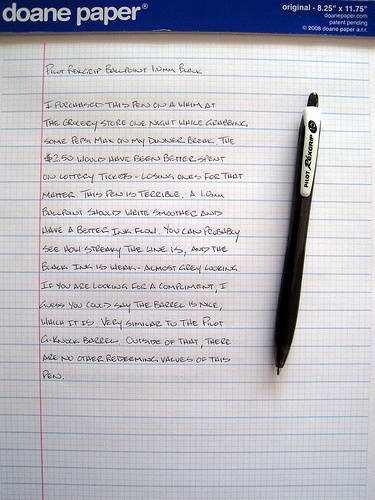 doane paper®
original - 8.25" x 11.75"
doanepaper.com
patent pending
© 2008 doane paper a.r.r.
PILOT REXGRIP BALLPOINT 1.0MM BLACK
I PURCHASED THIS PEN ON A WHIM AT
THE GROCERY STORE ONE NIGHT WHILE GRABBING
SOME PEPSI MAX ON MY DINNER BREAK. THE
$2.50 WOULD HAVE BEEN BETTER SPENT
ON LOTTERY TICKETS - LOSING ONES FOR THAT
MATTER. THIS PEN IS TERRIBLE. A 1.0MM
BALLPOINT SHOULD WRITE SMOOTHER AND
HAVE A BETTER INK FLOW. YOU CAN PROBABLY
SEE HOW STREAKY THE LINE IS, AND THE
BLACK INK IS WEAK - ALMOST GREY LOOKING.
IF YOU ARE LOOKING FOR A COMPLIMENT, I
GUESS YOU COULD SAY THE BARREL IS NICE,
WHICH IT IS. VERY SIMILAR TO THE PILOT
G-KNOCK BARREL. OUTSIDE OF THAT, THERE
ARE NO OTHER REDEEMING VALUES OF THIS
PEN.
PILOT REXGRIP